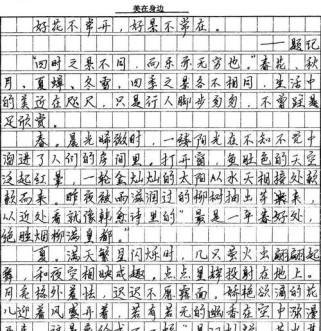 美在身边
好花不常开，好景不常在。
——题记
"四时之景不同，而乐亦无穷也。"春花、秋
月、夏蝉、冬雪，四季之景各不相同，生活中
的美近在咫尺，只是行人脚步匆匆，不曾驻足
足欣赏。
春。晨光晞微时，一缕阳光在不知不觉中
溜进了人们的房间里。打开窗，鱼肚色的天空
泛起红晕，一轮金灿灿的太阳从水天相接处款
款而来。昨夜被雨滋润过的柳树抽出芽来，
从近处看就像韩愈诗里的"最是一年春好处，
绝胜烟柳满皇都。"
夏。满天繁星闪烁时，几只萤火虫翩翩起
舞，和夜空相映成趣，点点星辉投射在地上。
月亮格外羞怯，迟迟不愿露面。娇艳欲滴的花
儿迎着风盛开着，若有若无的幽香在空中弥漫